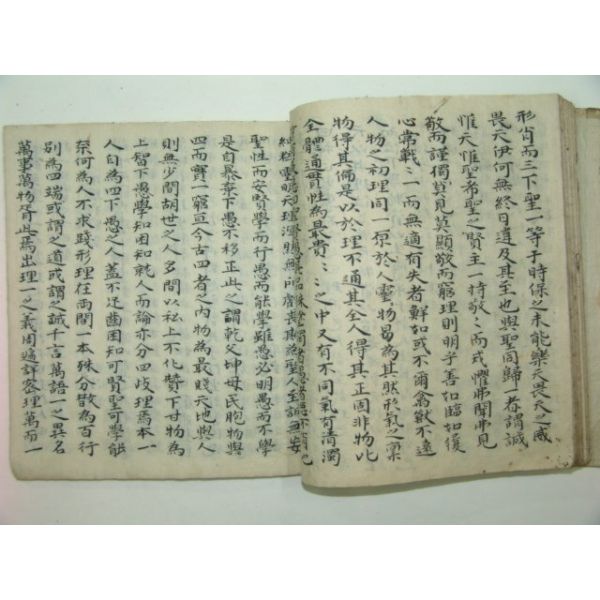 形肖而三下聖一等于時保之未能樂天畏天之威
畏天伊何無終日違及其至也與聖同歸者謂誠
惟天惟聖希聖之賢主一持敬〻而戒懼弗聞弗見
敬而謹獨莫見莫顯敬而窮理則明乎善如臨如履
心常戰〻一而無適有失者鮮如或不爾禽獸不遠
人物之初理同一原於人靈物易爲其然形氣之稟
物得其偏是以於理不通其全人得其正固非物比
全體通貫性爲最貴〻之中又有不同氣有淸濁
聖性而安賢學而行愚而能學雖愚必明愚而不學
是自暴棄下愚不移正此之謂乾父坤母民胞物與
四而實一窮亘今古四者之內物爲最賤天地與人
則無少間胡世之人多間以私上不化贊下甘物爲
上智下愚學知困知就人而論亦分四歧理焉本一
人自爲四下愚之人蓋不迂齒困知可賢聖可學能
奈何爲人不求踐形理在兩間一本殊分散爲百行
別爲四端或謂之道或謂之誠千言萬語一之異名
萬事萬物胥此焉出理一之義周遍詳密理萬而一